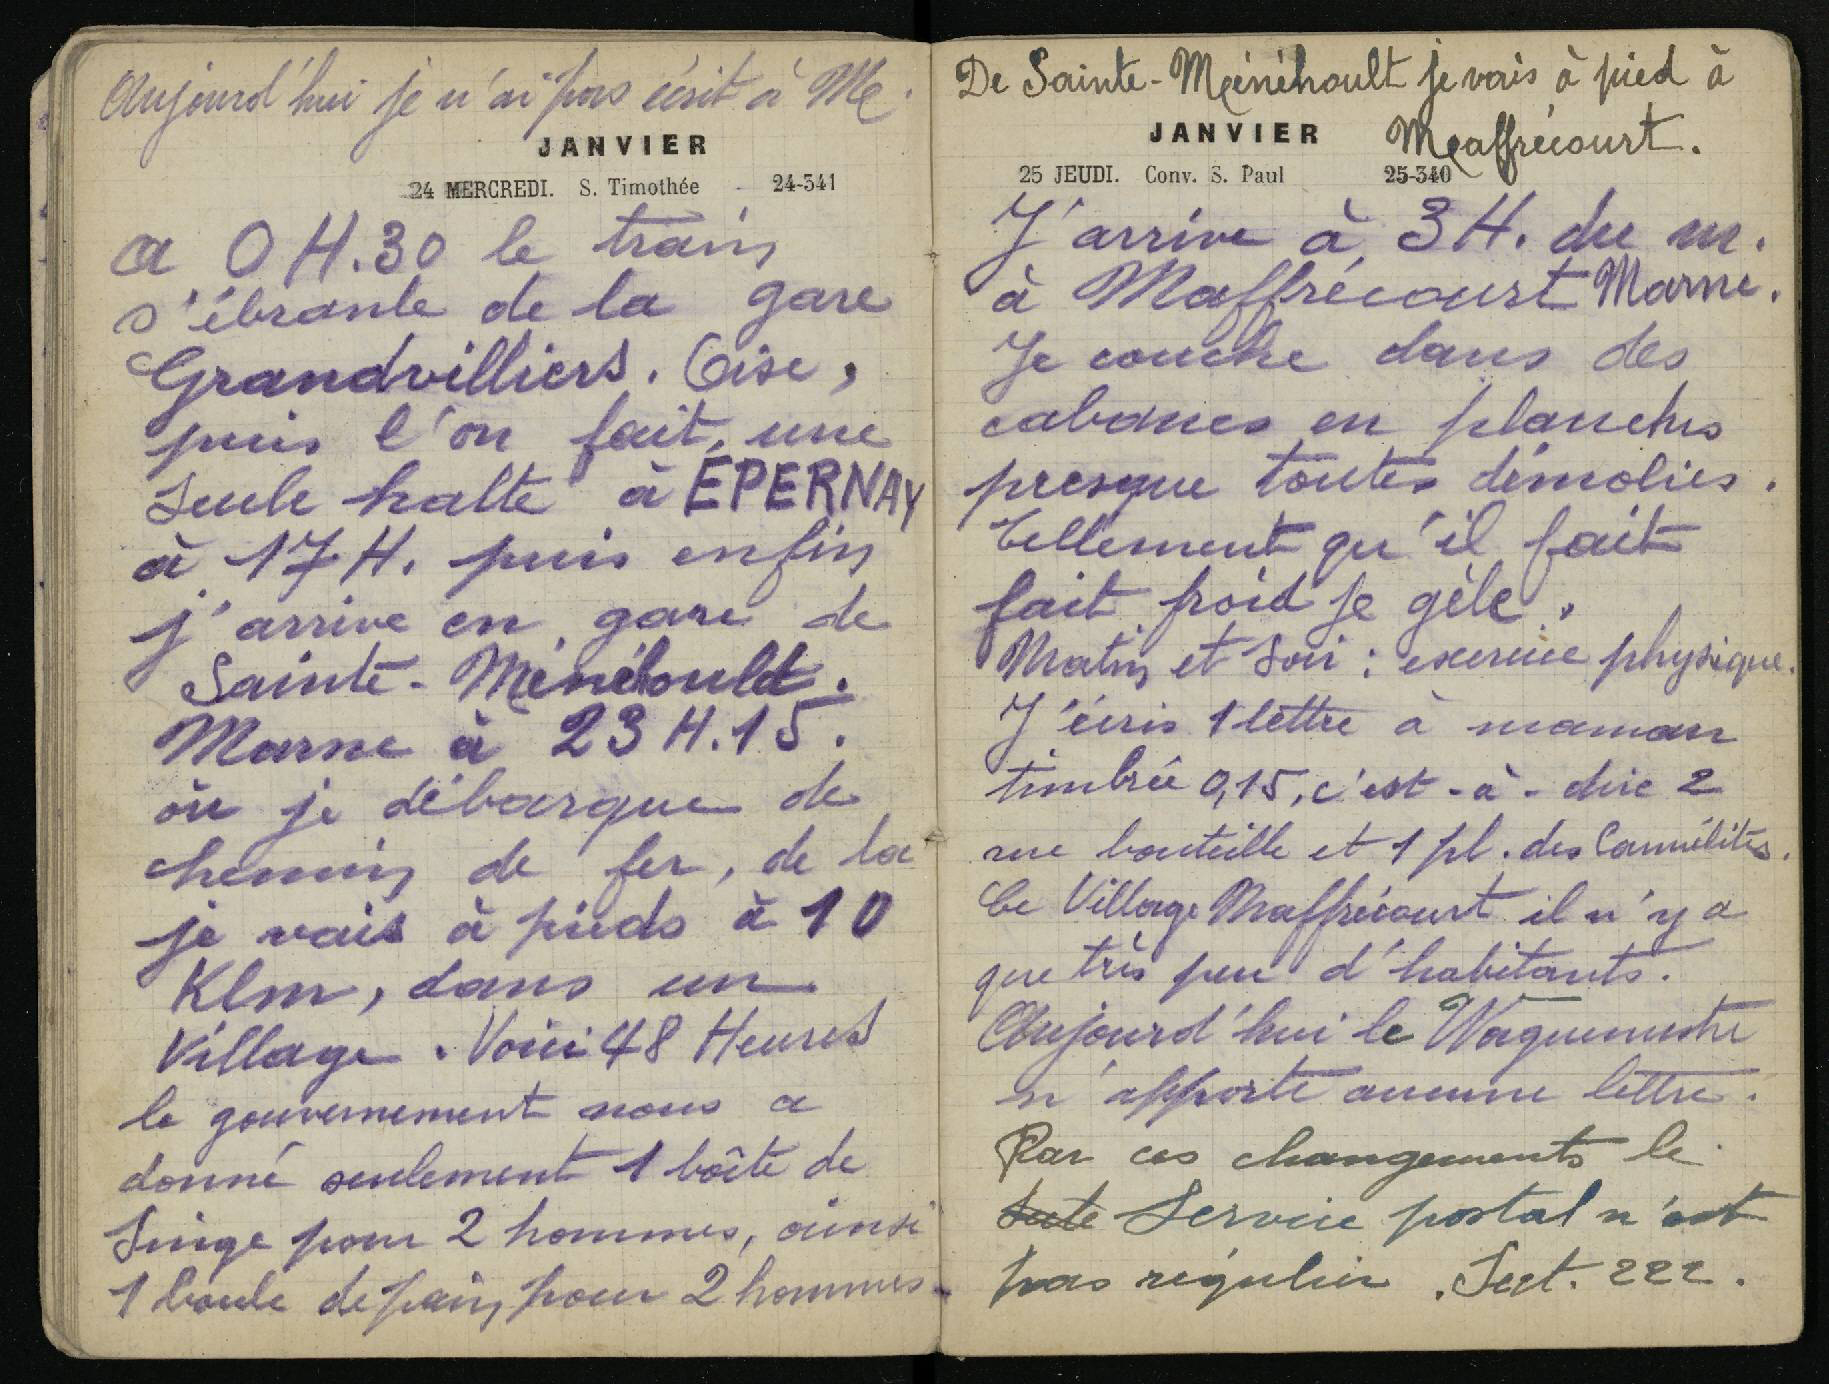 Aujourd'hui je n'ai pas écrit à Me.
JANVIER
24 MERCREDI. S. Timothée - 24-341
a 0 H.30 le train
s'ébranle de la gare
Grandvilliers. Oise,
puis l'on fait, une
seule halte à ÉPERNAY
à 17 H. puis enfin
j'arrive en gare de
Sainte-Ménéhould.
Marne à 23 H.15.
où je débarque de
chemin de fer, de la
je vais à pieds à 10
Klm, dans un
Village. Voici 48 Heures
le gouvernement nous a
donné seulement 1 boîte de
Singe pour 2 hommes, ainsi
1 boule de pain, pour 2 hommes
De Sainte-Ménéhoult je vais à pied à
Maffrécourt.
JANVIER
25 JEUDI. Conv. S. Paul 25-340
J'arrive à 3 H. du m.
à Maffrécourt Marne.
Je couche dans des
cabanes en planches
presque toutes démolies.
Tellement qu'il fait
fait froid je gèle.
Matin et Soir : exercice physique.
J'écris 1 lettre à maman
timbrée 0,15, c'est-à-dire 2
rue bouteille et 1 pl. des Carmélites.
Ce Village Maffrécourt il n'y a
que très peu d'habitants.
Aujourd'hui le Waguemestre
n'apporte aucune lettre.
Par ces changements le
Service postal n'est
pas régulier. Sect. 222.